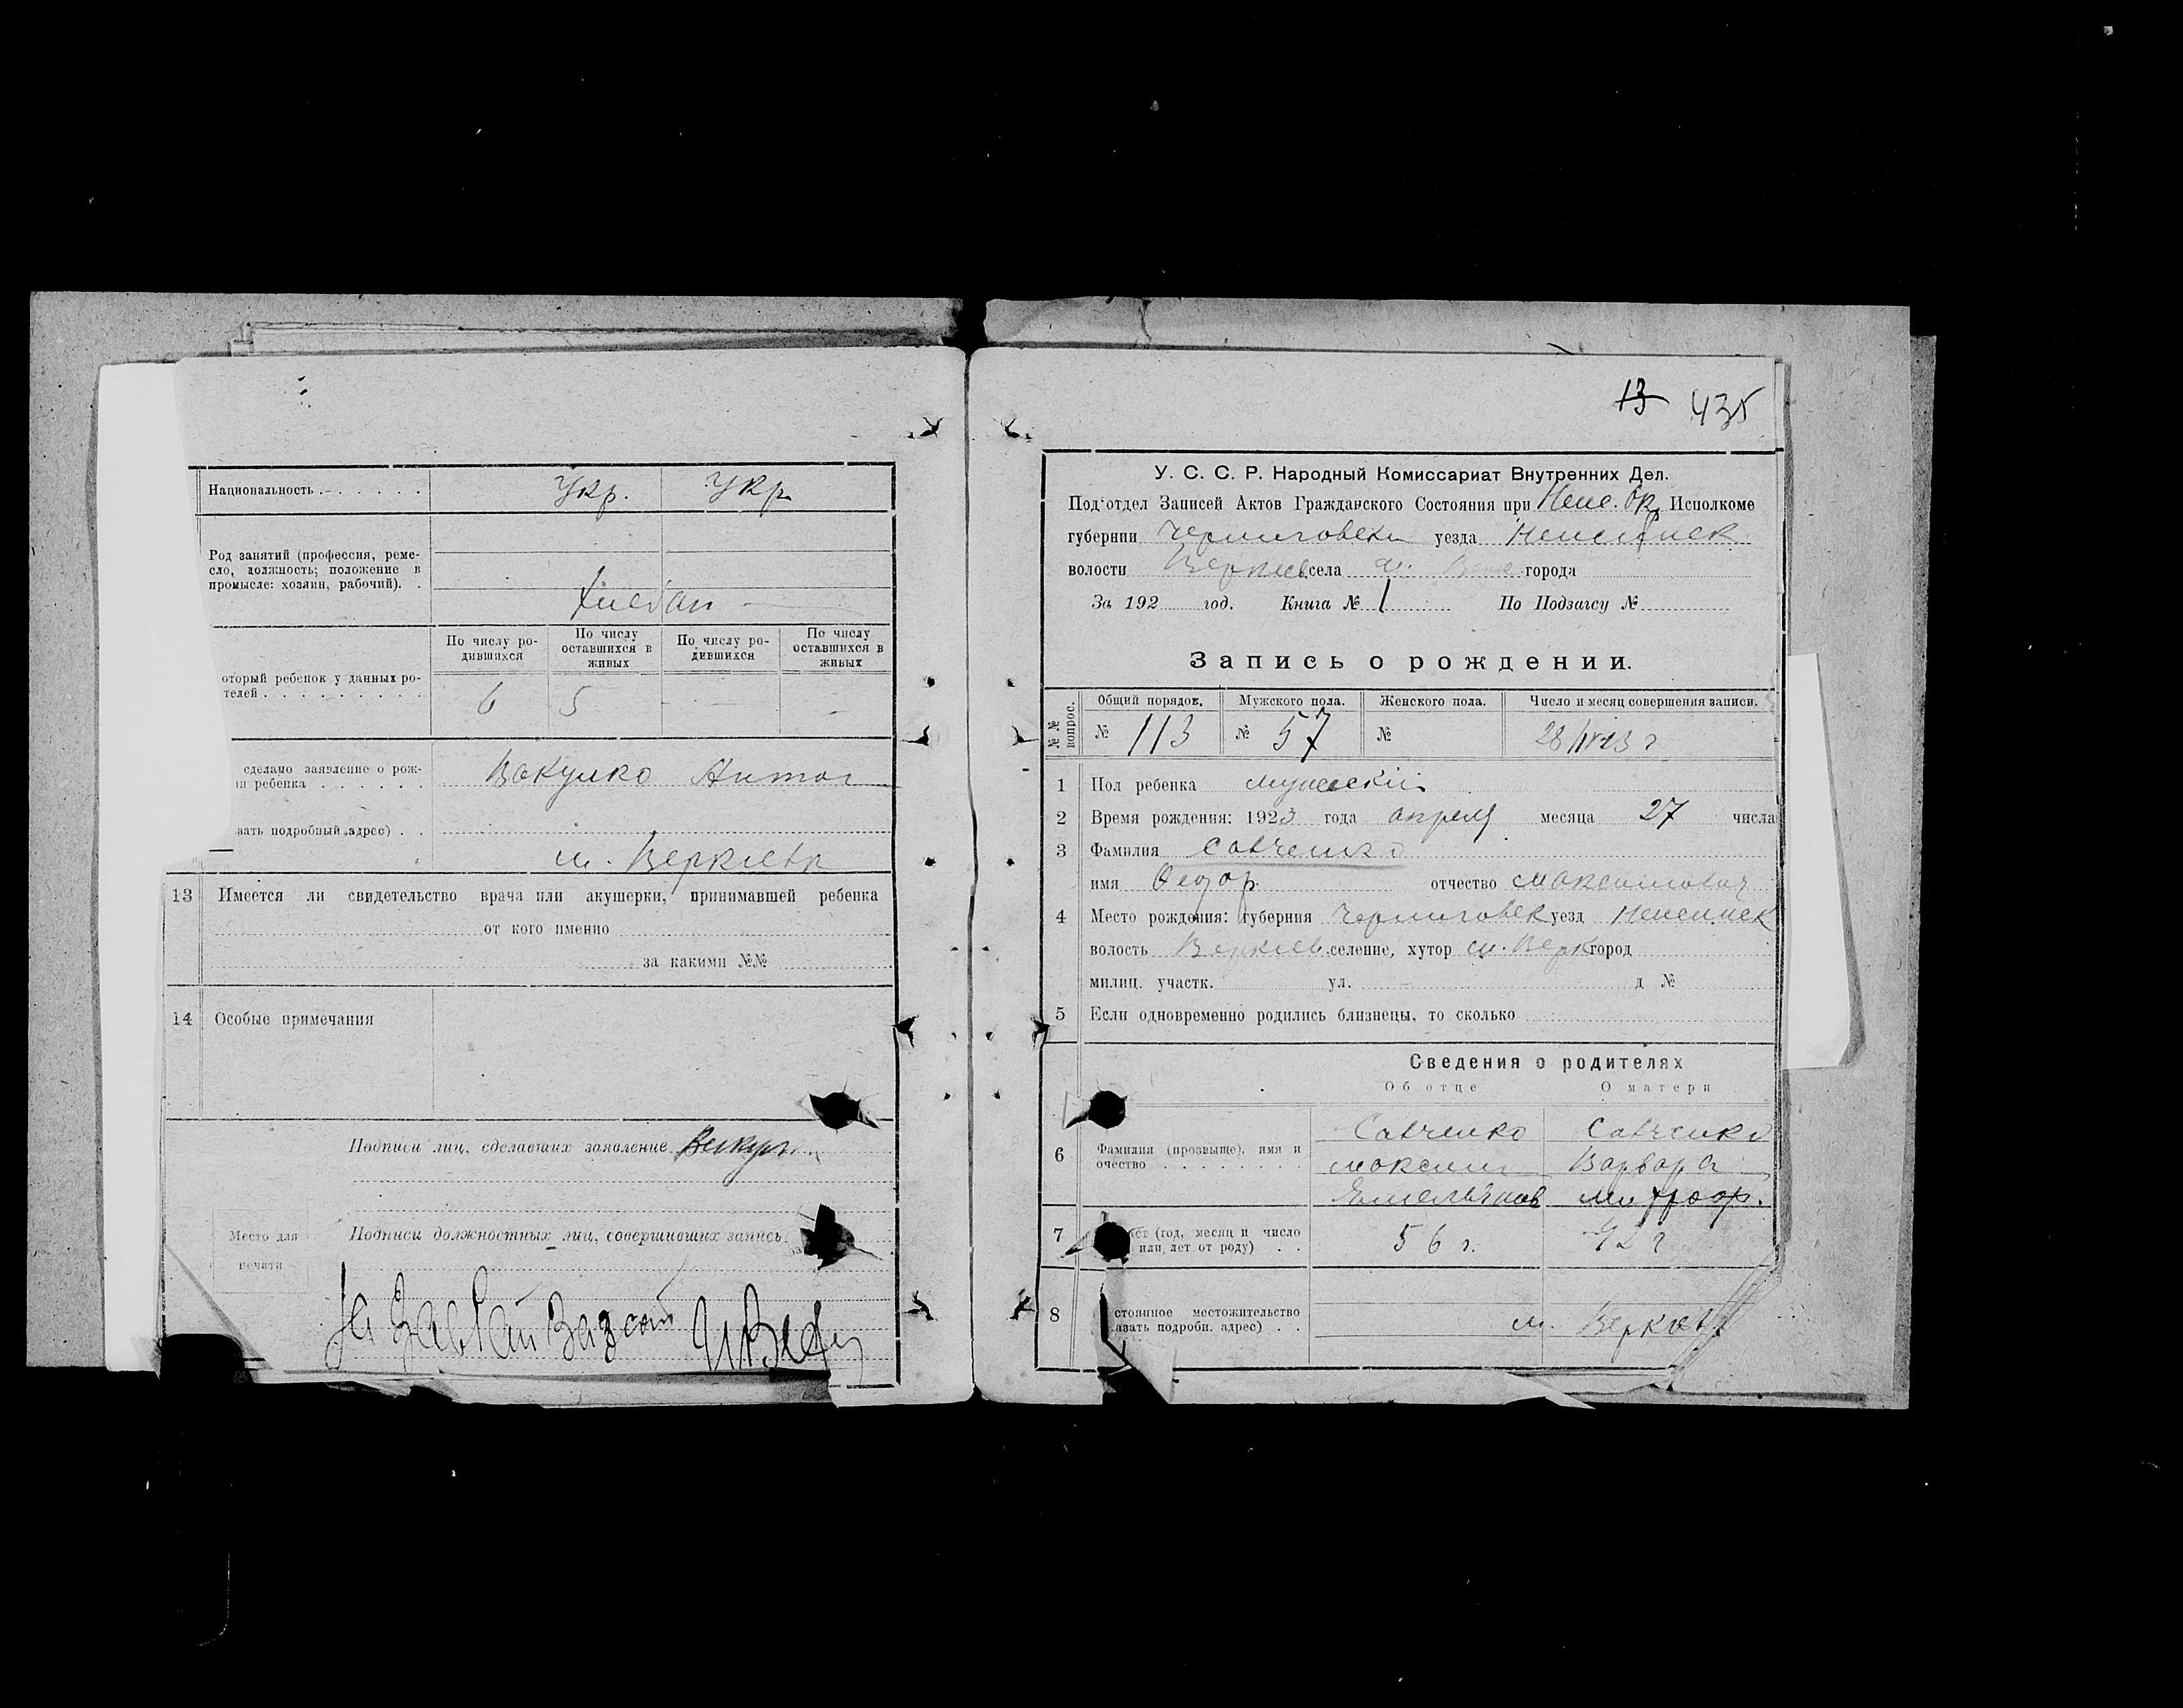 Национальность . . . . . . Укр. Укр
Род занятий (профессия, реме-
сло, должность; положение в
промысле: хозяин, рабочий). .
оторый ребенок у данных ро-
телей . . . . . . . . .
По числу ро-
дившихся
По числу
оставшихся в
живых
По числу ро-
дившихся
По числу
оставшихся в
живых
6 5 - -
сделано заявление о рож-
ии ребенка . . . . . . Вакулко Антон
зать подробный адрес) . .
м. Веркиевк
13 Имеется ли свидетельство врача или акушерки, принимавшей ребенка
от кого именно
за какими №№
14 Особые примечания
Подписи лиц, сделавших заявление
Место для
печати
Подписи должностных лиц, совершивших запись
13 435
У. С. С. Р. Народный Комиссариат Внутренних Дел.
Под‘отдел Записей Актов Гражданского Состояния при Неже. Ок. Исполкоме
губернии Черниговск уезда Нежинск
волости Веркиев села м. Верк города
За 192 год. Книга № 1 По Подзагсу №
Запись о рождении.
№№ вопрос.
Общий порядок. Мужского пола. Женского пола. Число и месяц совершения записи.
№ 113 № 57 № 28/IV-23 г
1 Пол ребенка мужескій
2 Время рождения: 1923 года апреля месяца 27 числа
3 Фамилия Савченко
имя Федор отчество Максимович
4 Место рождения: губерния Черниговск уезд Нежинск
волость Веркиев. селение, хутор м. Верк город
милиц. участк. ул. д №
5 Если одновременно родились близнецы, то сколько
Сведения о родителях
Об отце О матери
6 Фамилия (прозвище), имя и
очество . . . . . . . .
Савченко Савченко
Максим Варвара
Емельянов Митроф.
7 ст (год, месяц и число
или лет от роду) . . 56 г. 42 г
8 стоянное местожительство
азать подробн. адрес) . . м. Веркиев